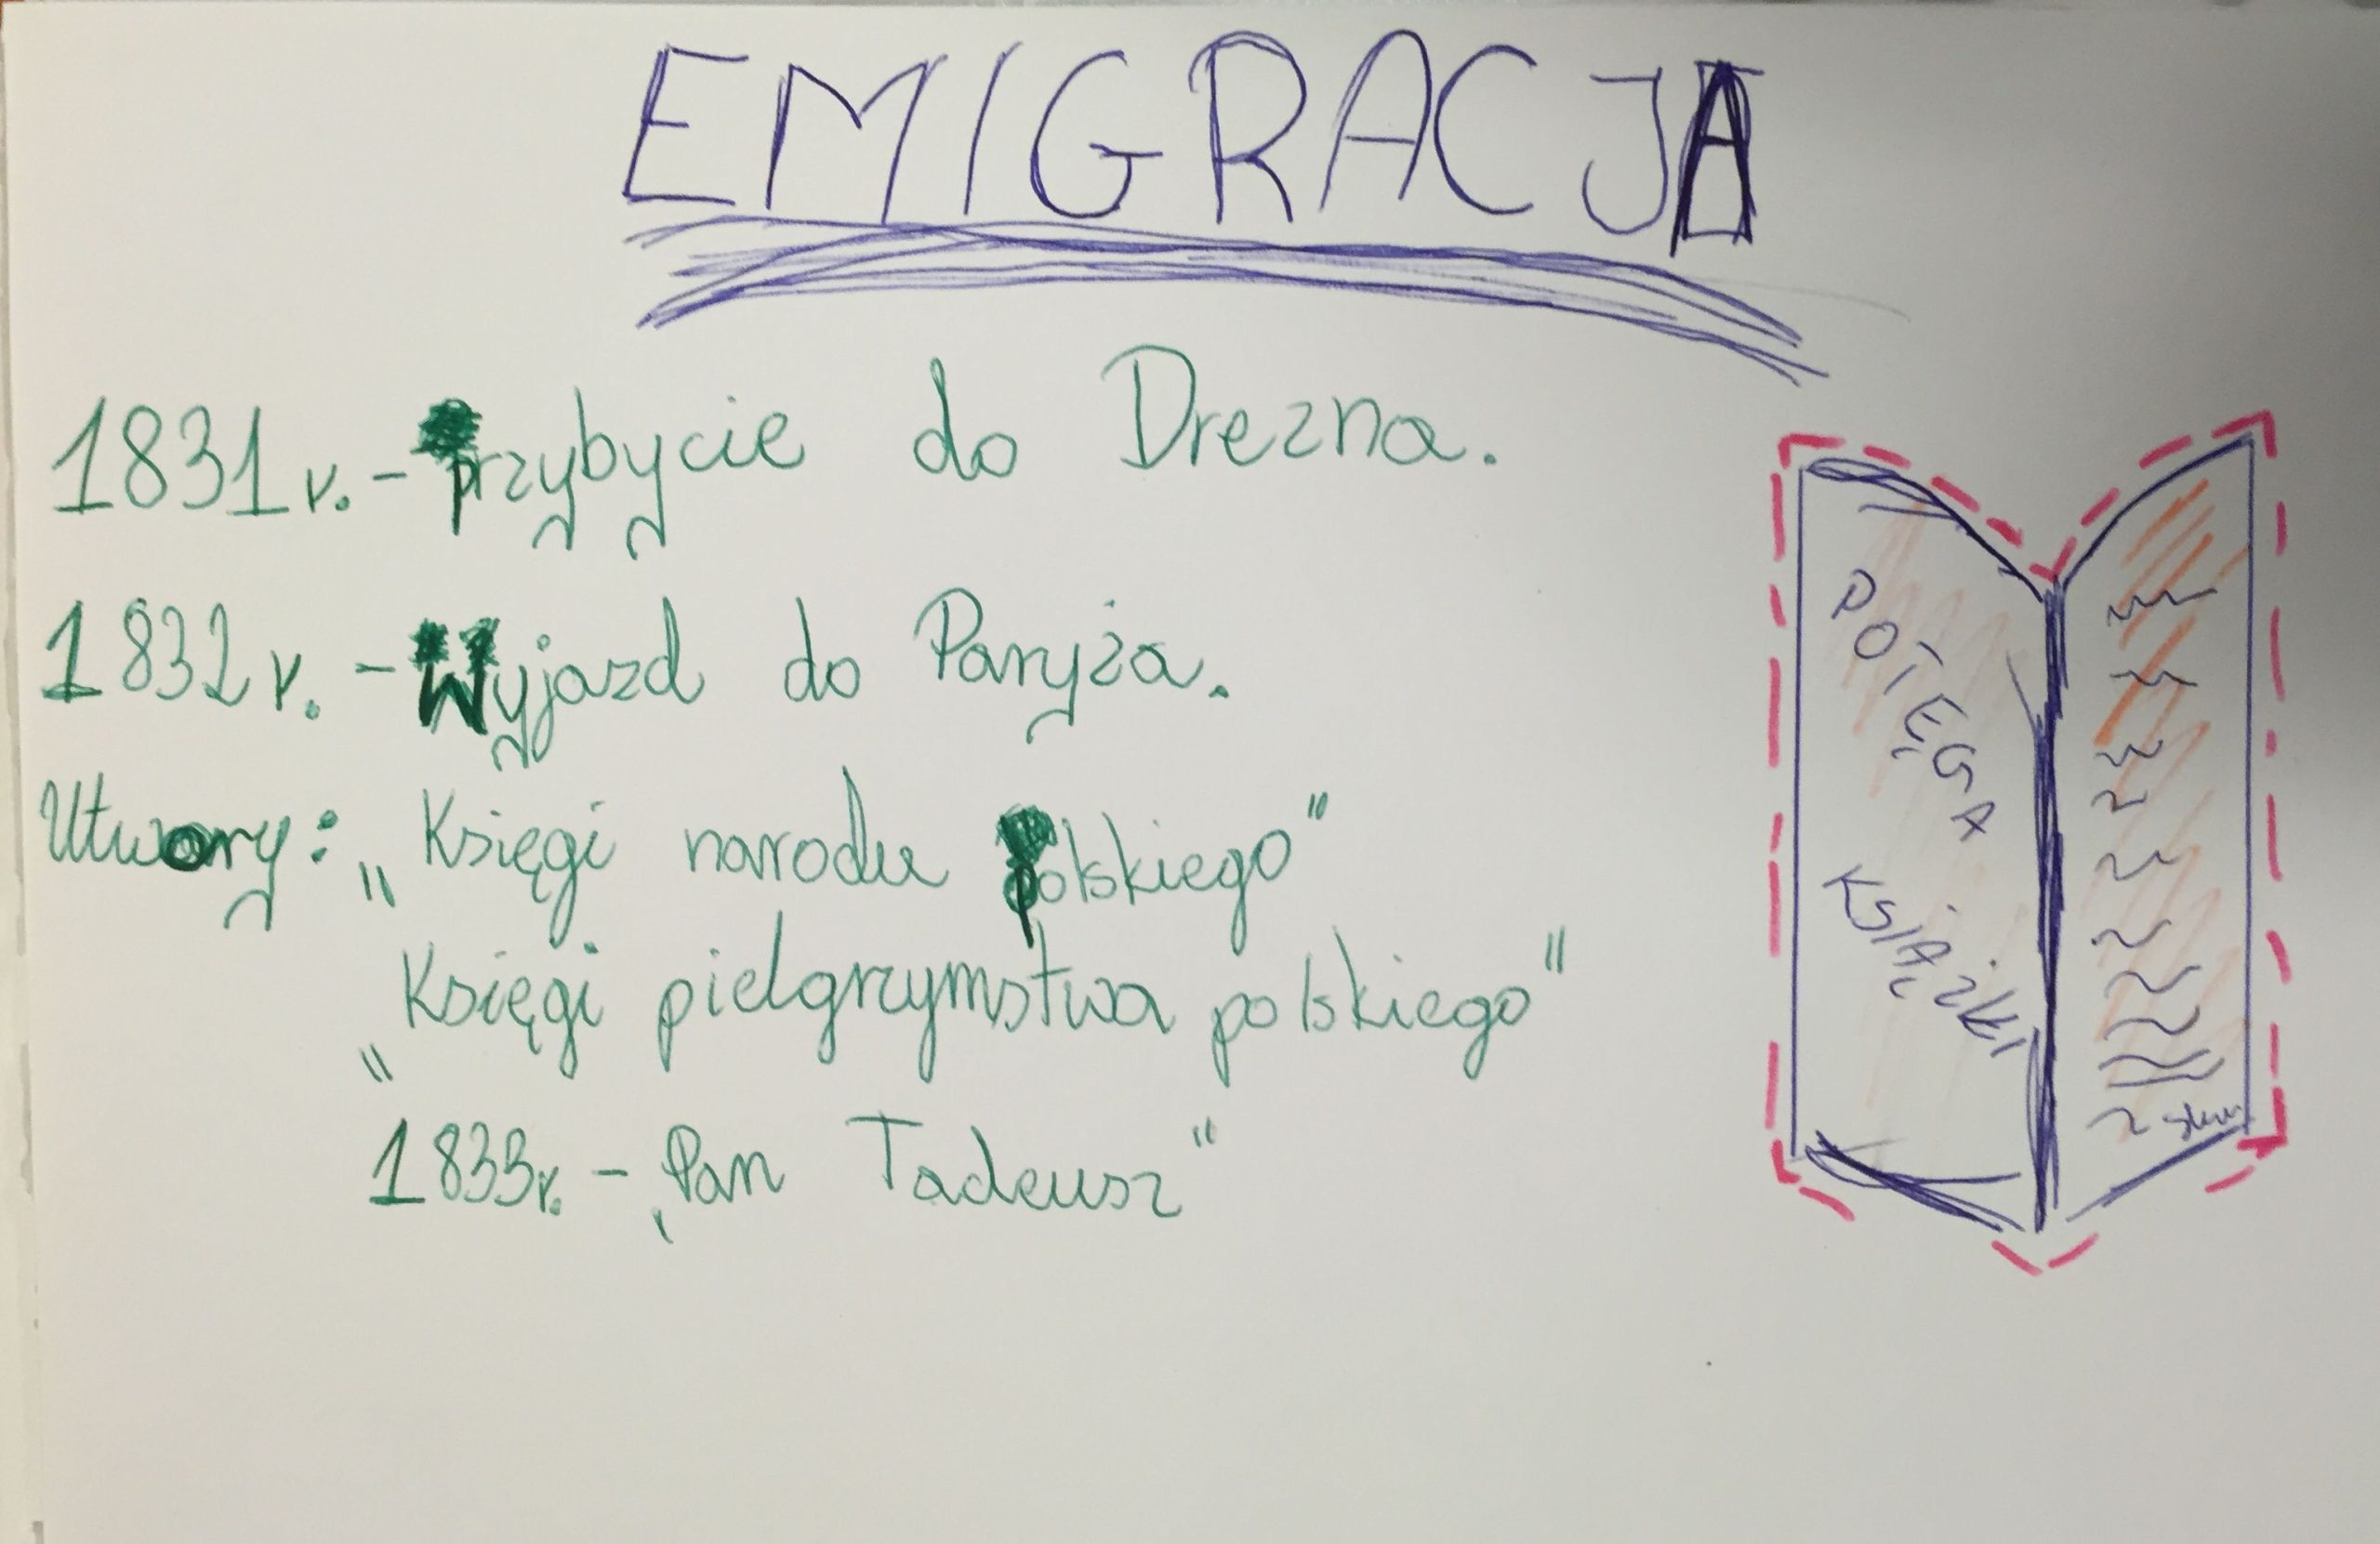 EMIGRACJA
1831 r. - przybycie do Drezna.
1832 r. - Wyjazd do Paryża.
Utwory: „Księgi narodu polskiego"
„Księgi pielgrzymstwa polskiego"
1833r. - „Pan Tadeusz"
POTĘGA
KSIĄŻKI